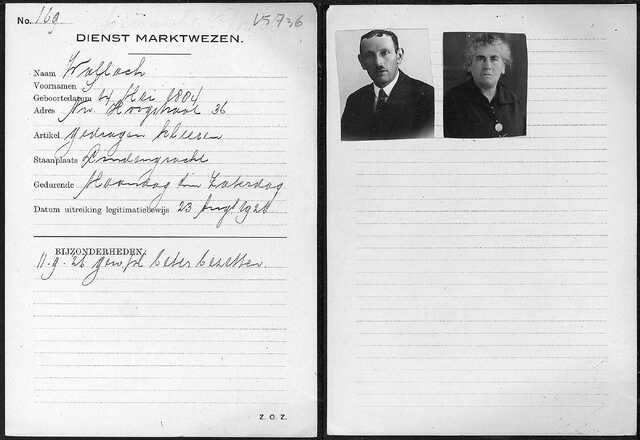 No. 160
V5736
DIENST MARKTWEZEN.
Naam Wallach
Voornamen S
Geboortedatum 14 Mei 1864
Adres Nw. Hoogstraat 36
Artikel gedragen kleeren
Staanplaats Lindengracht
Gedurende Maandag t/m Zaterdag
Datum uitreiking legitimatiebewijs 23 1926
BIJZONDERHEDEN:
11-9-26
Z. O. Z.